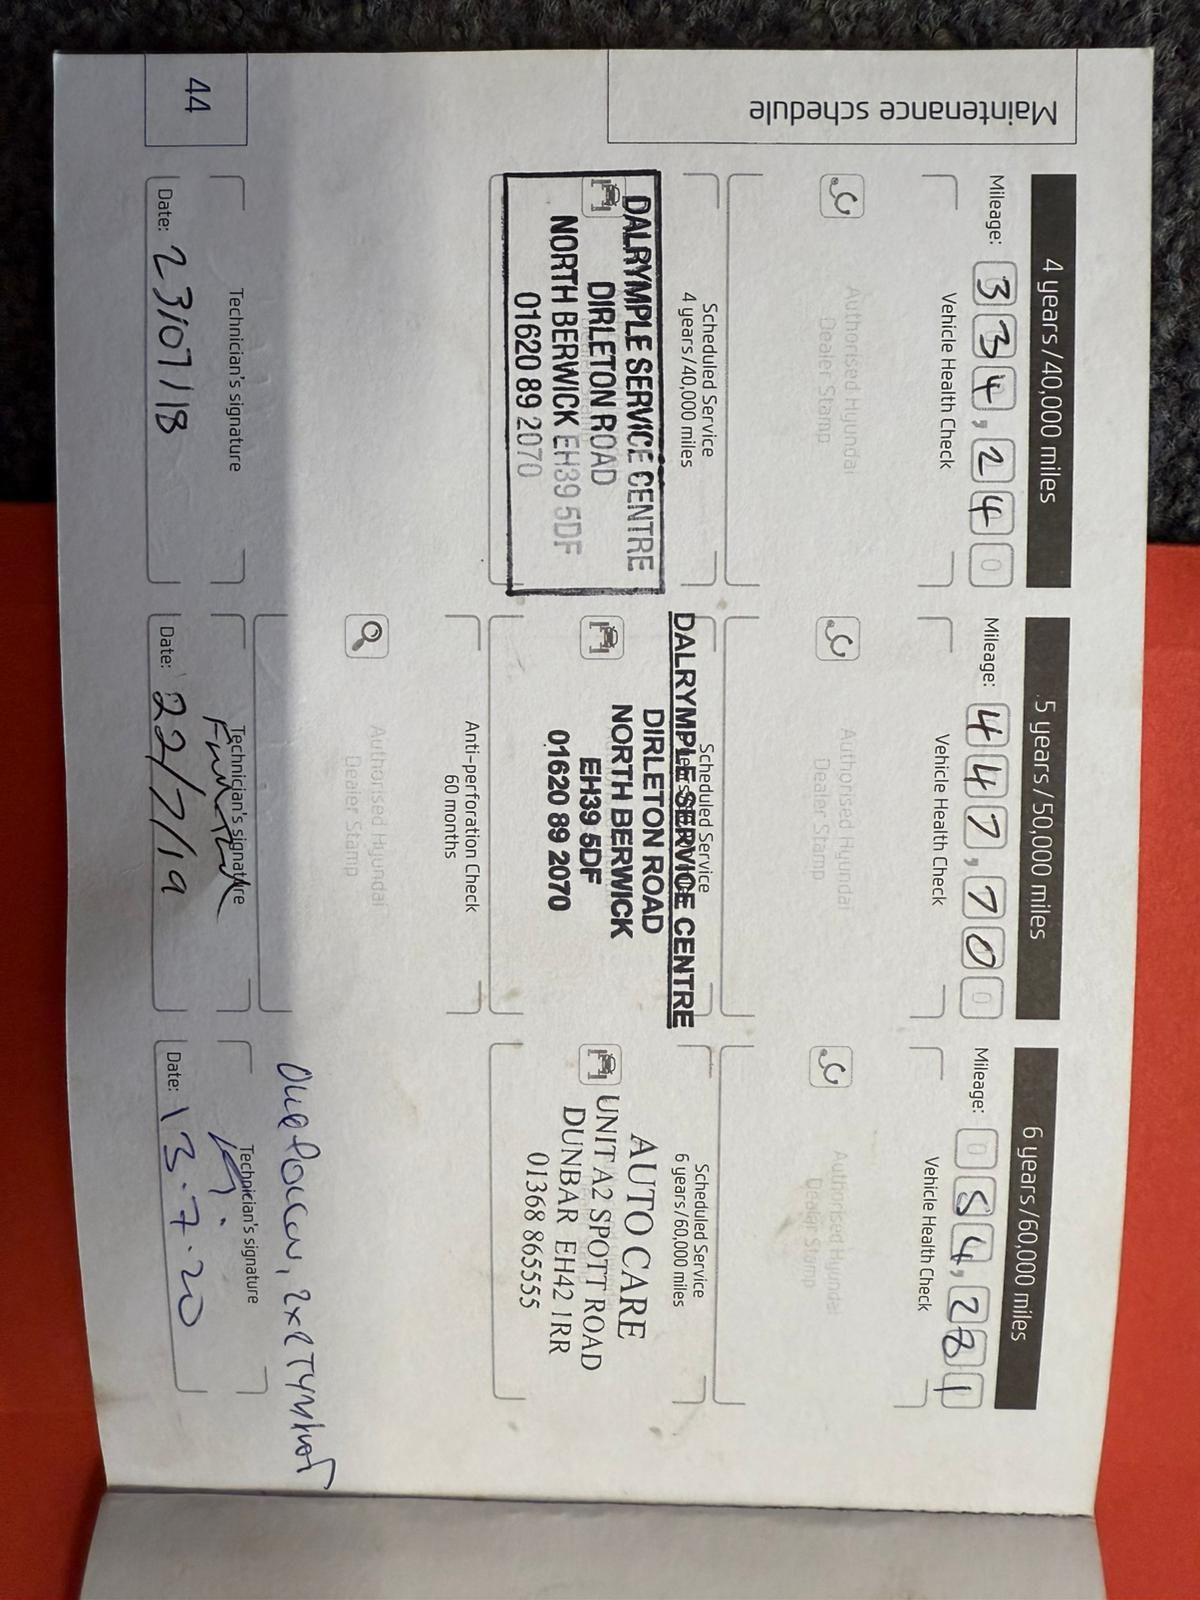 Maintenance schedule
4 years/40,000 miles
Mileage: 334,240
Vehicle Health Check
Authorised Hyundai
Dealer Stamp
Scheduled Service
4 years/40,000 miles
DALRYMPLE SERVICE CENTRE
DIRLETON ROAD
NORTH BERWICK EH39 5DF
01620 89 2070
Technician's signature
Date: 23/07/18
5 years/50,000 miles
Mileage: 447,700
Vehicle Health Check
Authorised Hyundai
Dealer Stamp
Scheduled Service
DALRYMPLE SERVICE CENTRE
DIRLETON ROAD
NORTH BERWICK
EH39 5DF
01620 89 2070
Anti-perforation Check
60 months
Authorised Hyundai
Dealer Stamp
Technician's signature
Date: 22/7/19
6 years/60,000 miles
Mileage: 054,281
Vehicle Health Check
Authorised Hyundai
Dealer Stamp
Scheduled Service
6 years/60,000 miles
AUTO CARE
UNIT A2 SPOTT ROAD
DUNBAR EH42 1RR
01368 865555
Technician's signature
Date: 13.7.20
44